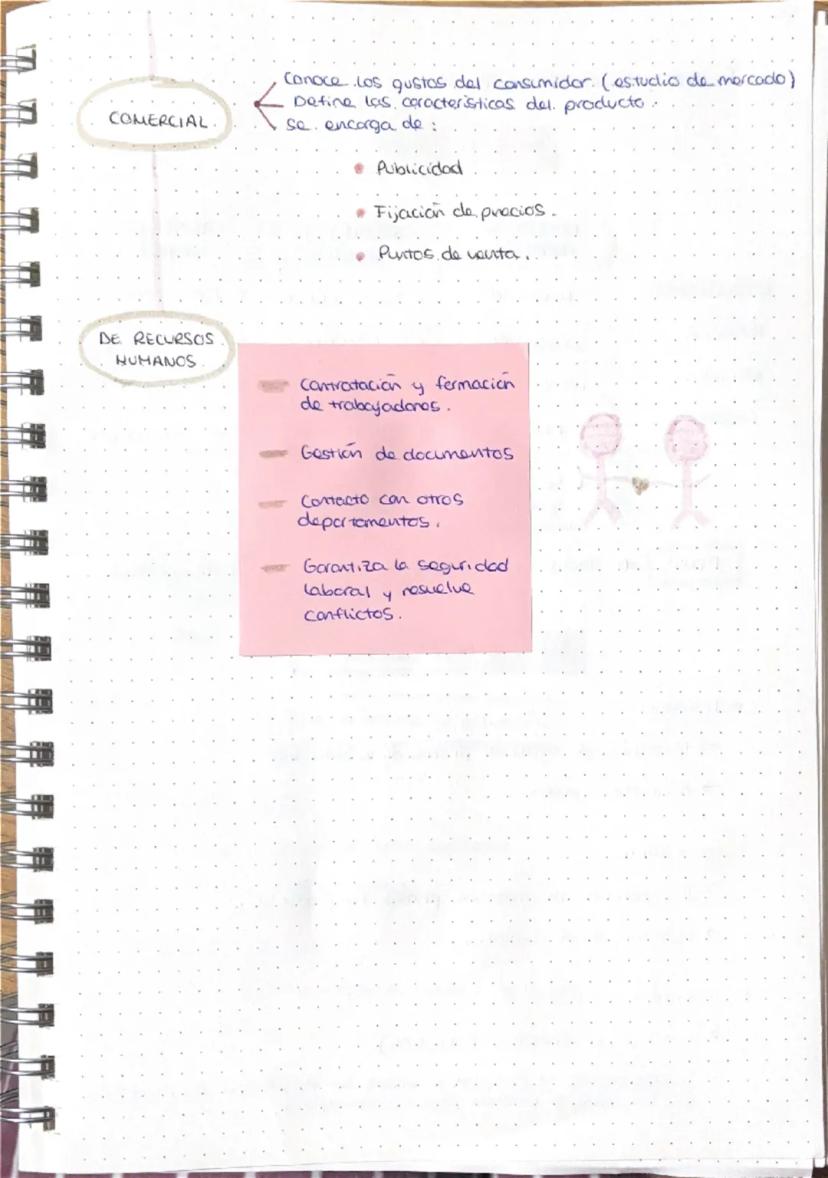 COMERCIAL
Conoce los gustos del consumidor. (estudio de mercado)
Define las características del producto.
se encarga de:
• Publicidad
• Fijación de precios.
• Puntos de venta.
DE RECURSOS
HUMANOS
- Contratación y formación
de trabajadores.
- Gestión de documentos
- Contacto con otros
departamentos.
- Garantiza la seguridad
laboral y resuelve
conflictos.